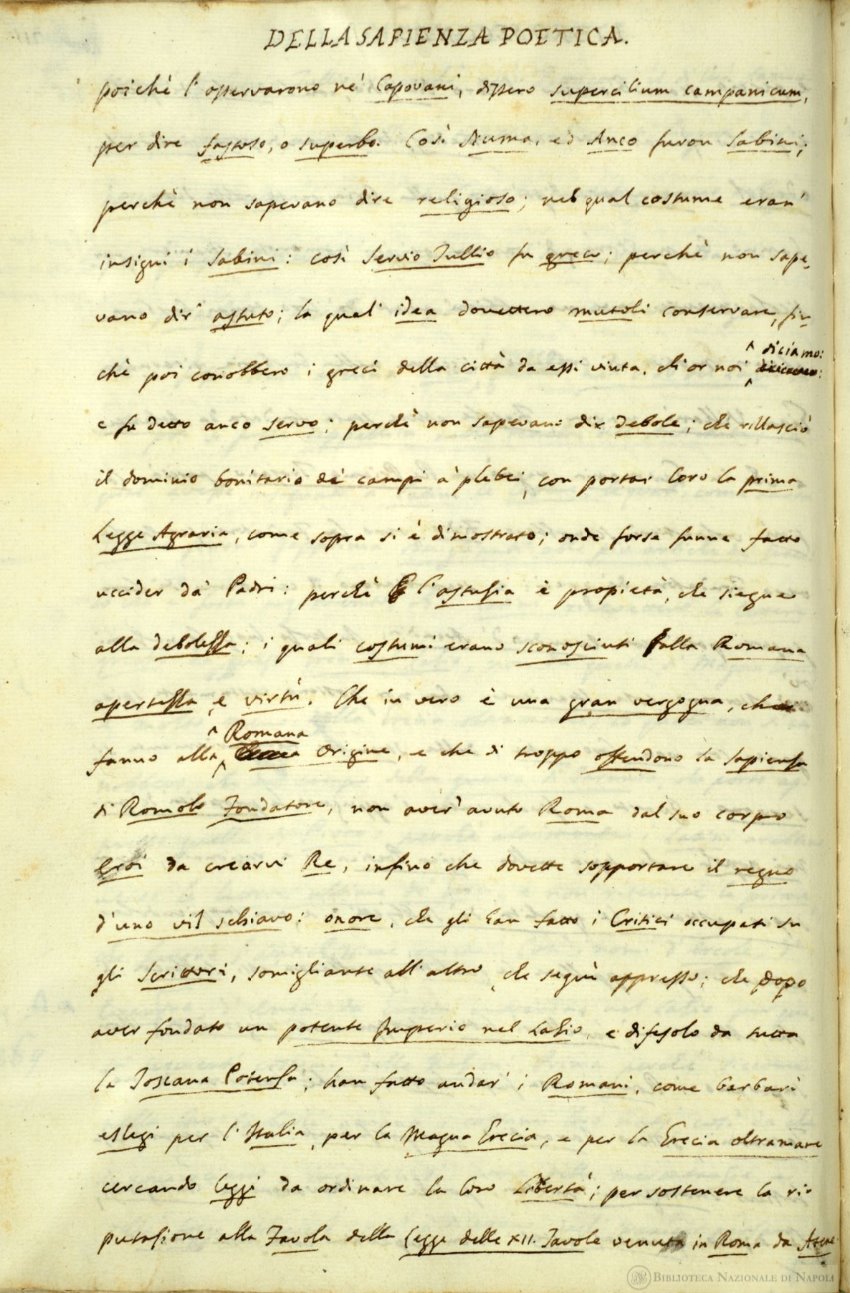 DELLA SAPIENZA POETICA.
poichè l' osservarono ne' Capovani, dissero supercilium campanicum,
per dire fastoso, o superbo. Così Numa, ed Anco furon Sabini;
perchè non sapevano dire religioso; nel qual costume eran'
insigni i Sabini: così Servio Tullio fu greco; perchè non sape-
vano dir' astuto; la qual' idea dovettero mutoli conservare, fin-
chè poi conobbero i greci della città da essi vinta, ch' or noi diciamo:
e fu detto anco servo; perchè non sapevano dir debole; che rillasciò
il dominio bonitario de' campi a' plebei, con portar loro la prima
Legge Agraria, come sopra si è dimostrato; onde forse funne fatto
uccider da' Padri: perchè l'astuzia è propietà, che siegue
alla debolezza; i quali costumi erano sconosciuti alla Romana
apertezza, e virtù. Che in vero è una gran vergogna, che
fanno alla Romana origine, e che di troppo offendono la sapienza
di Romolo Fondatore, non aver' avuto Roma dal suo corpo
Eroi da crearvi Re, infino che dovette sopportare il regno
d'uno vil schiavo: onore, che gli han fatto i Critici occupati su
gli Scrittori, somigliante all' altro, che seguì appresso; che dopo
aver fondato un potente Imperio nel Lazio, e difesolo da tutta
la Toscana Potenza; han fatto andar' i Romani, come barbari
eslegi per l'Italia, per la Magna Grecia, e per la Grecia oltramare
cercando leggi da ordinare la loro Libertà; per sostenere la ri-
putazione alla Favola della Legge delle XII. Tavole venuta in Roma da Atene
BIBLIOTECA NAZIONALE DI NAPOLI